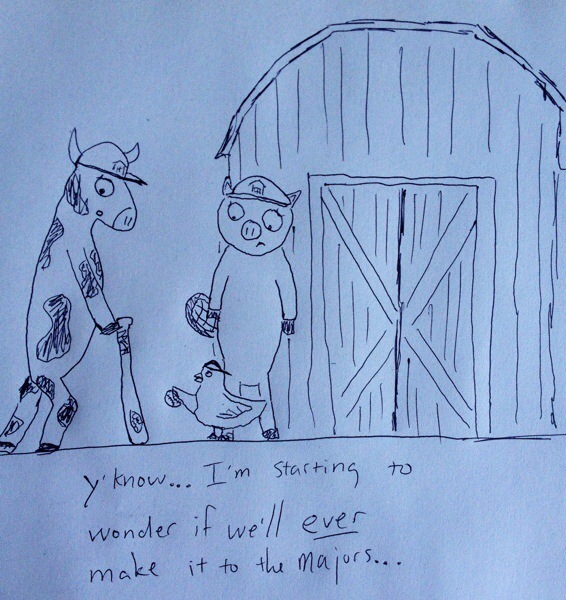 y'know... I'm starting to
wonder if we'll ever
make it to the majors...